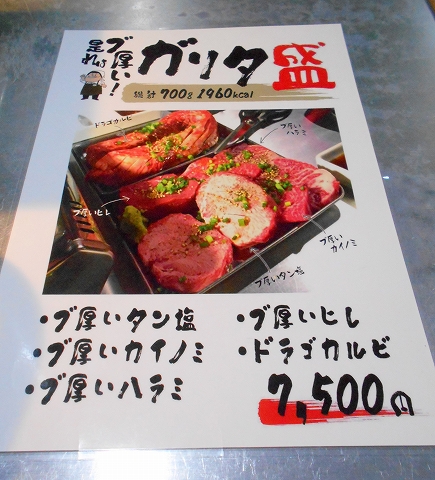 ブ厚い!
是れぞ
ガリタ盛
総計 700g 1960kcal
ドラゴカルビ
ブ厚いハラミ
ブ厚いヒレ
ブ厚いカイノミ
ブ厚いタン塩
・ブ厚いタン塩
・ブ厚いカイノミ
・ブ厚いハラミ
・ブ厚いヒレ
・ドラゴカルビ
7,500円